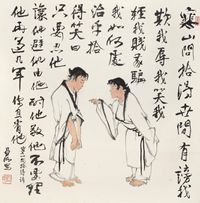 寒山問拾得世間有謗我
欺我辱我笑我
輕我賤我騙
我如何處
治乎拾
得笑曰
只要忍他
讓他避他由他耐他敬他不要理
他再過几年你且看他